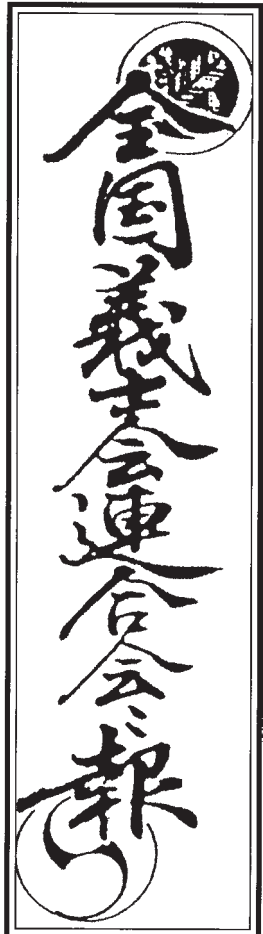 全国義士会連合会々報